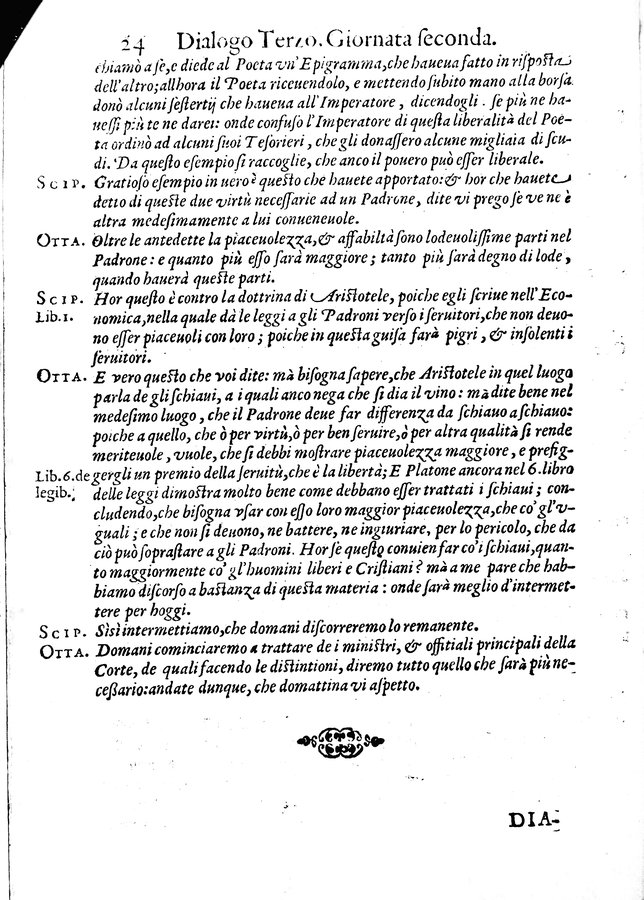 24 Dialogo Terzo. Giornata ſeconda.
chiamò a ſe, e diede al Poeta vn'Epigramma, che haueua fatto in riſpoſta
dell'altro; allhora il Poeta riceuendolo, e mettendo ſubito mano alla borſa
donò alcuni ſeſtertij che haueua all'Imperatore, dicendogli. ſe più ne ha-
ueſſi più te ne darei: onde confuſo l'Imperatore di queſta liberalità del Poe-
ta ordinò ad alcuni ſuoi Teſorieri, che gli donaſſero alcune migliaia di ſcu-
di. Da queſto eſempio ſi raccoglie, che anco il pouero può eſſer liberale.
SCIP. Gratioſo eſempio in uero è queſto che hauete apportato: & hor che hauete
detto di queſte due virtù neceſſarie ad un Padrone, dite vi prego ſe ve ne è
altra medeſimamente a lui conueneuole.
OTTA. Oltre le antedette la piaceuolezza, & affabiltà ſono lodeuoliſſime parti nel
Padrone: e quanto più eſſo ſarà maggiore; tanto più ſarà degno di lode,
quando hauerà queſte parti.
SCIP. Hor queſto è contro la dottrina di Ariſtotele, poiche egli ſcriue nell'Eco-
Lib.1. nomica, nella quale dà le leggi a gli Padroni verſo i ſeruitori, che non deuo-
no eſſer piaceuoli con loro; poiche in queſta guiſa farà pigri, & inſolenti i
ſeruitori.
OTTA. E vero queſto che voi dite: mà biſogna ſapere, che Ariſtotele in quel luogo
parla de gli ſchiaui, a i quali anco nega che ſi dia il vino: mà dite bene nel
medeſimo luogo, che il Padrone deue far differenza da ſchiauo a ſchiauo:
poiche a quello, che ò per virtù, ò per ben ſeruire, ò per altra qualità ſi rende
meriteuole, vuole, che ſi debbi moſtrare piaceuolezza maggiore, e prefig-
Lib.6.de gergli un premio della ſeruitù, che è la libertà; E Platone ancora nel 6. libro
legib. delle leggi dimoſtra molto bene come debbano eſſer trattati i ſchiaui; con-
cludendo, che biſogna vſar con eſſo loro maggior piaceuolezza, che co' gl'v-
guali; e che non ſi deuono, ne battere, ne ingiuriare, per lo pericolo, che da
ciò può ſopraſtare a gli Padroni. Hor ſe queſto conuien far co' i ſchiaui, quan-
to maggiormente co' gl'huomini liberi e Criſtiani? mà a me pare che hab-
biamo diſcorſo a baſtanza di queſta materia: onde ſarà meglio d'intermet-
tere per hoggi.
SCIP. Sì sì intermettiamo, che domani diſcorreremo lo remanente.
OTTA. Domani cominciaremo a trattare de i miniſtri, & offitiali principali della
Corte, de quali facendo le diſtintioni, diremo tutto quello che ſarà più ne-
ceſſario: andate dunque, che domattina vi aſpetto.
DIA-